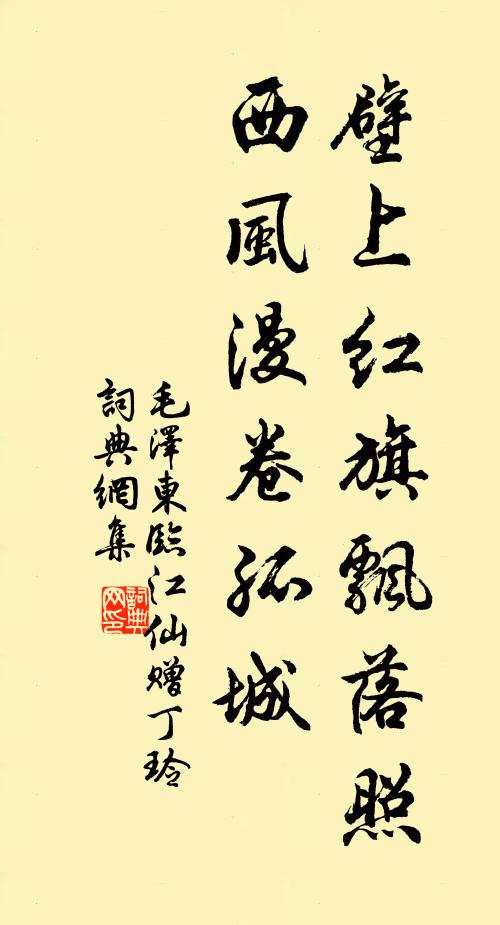 壁上红旗飄落照
西風漫卷孤城
毛澤東臨江仙赠丁玲
詞典網集
詞典
网印